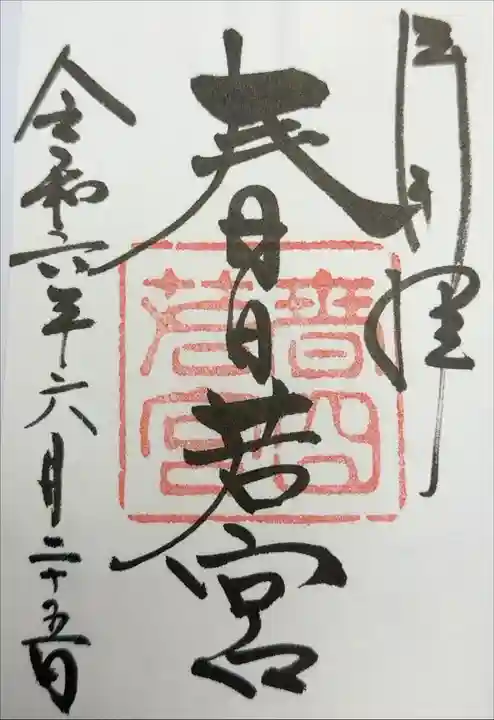 奉拝
春日若宮
春日若宮
令和六年六月二十五日